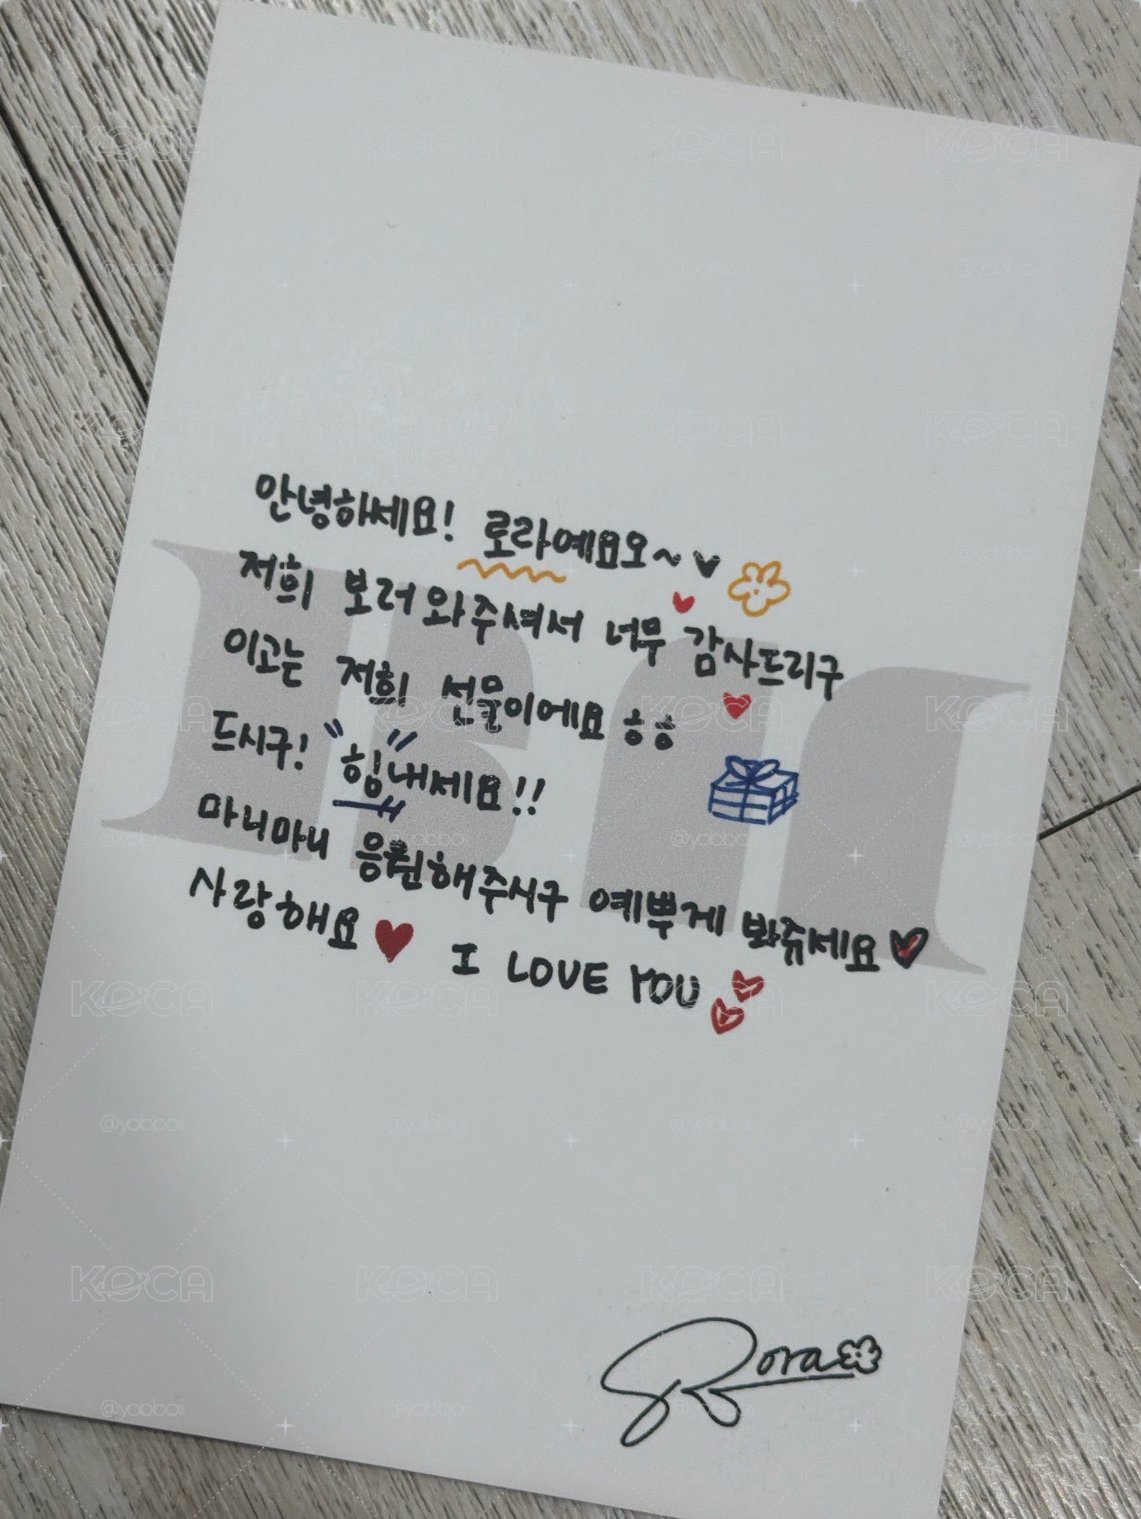 안녕하세요! 로라예요오~
저희 보러와주셔서 너무 감사드리구
이고는 저희 선물이에요 ㅎㅎ
드시구! "힘"내세요!!
마니마니 응원해주시구 예쁘게 봐쥬세요
사랑해요 I LOVE YOU
Rora
KOCA
@yobboi